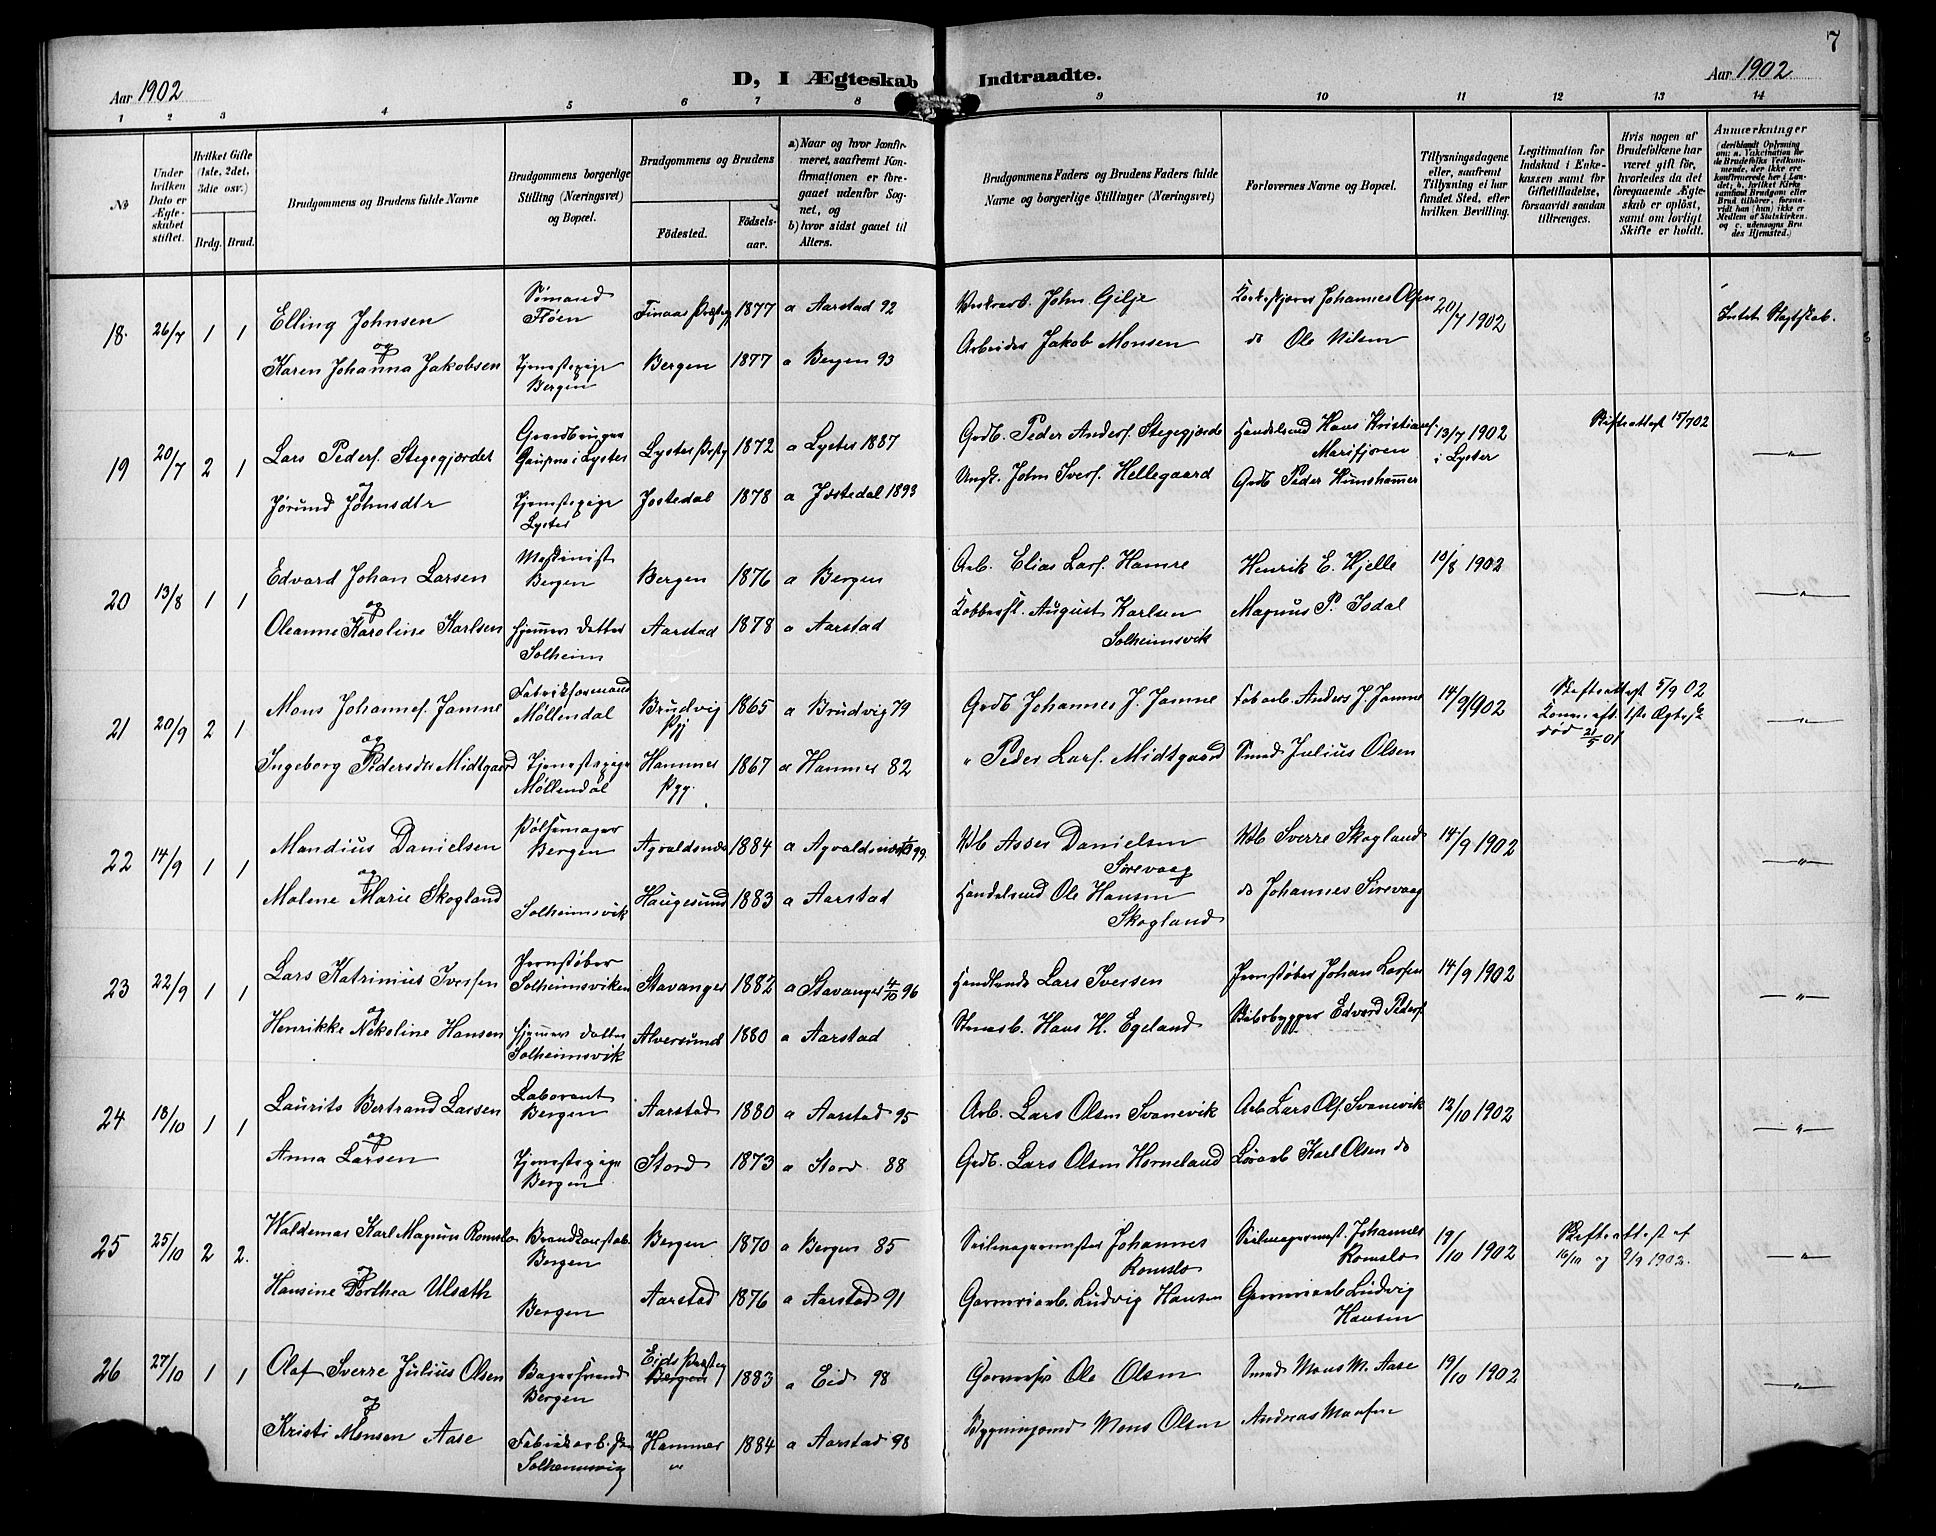 7
Aar 1902
D, I Ægteskab Indtraadte.
Aar 1902
1 2 3 4 5 6 7 8 9 10 11 12 13 14
No
Under hvilken Dato er Ægteskabet stiftet.
Hvilket Gifte (1ste, 2det, 3die osv.)
Brdg. Brud.
Brudgommens og Brudens fulde Navne
Brudgommens borgerlige Stilling (Næringsvei) og Bopæl.
Brudgommens og Brudens
Födested.
Födselsaar.
a) Naar og hvor konfirmeret, saafremt Konfirmationen er foregaaet udenfor Sognet, og
b) hvor sidst gaaet til Alters.
Brudgommens Faders og Brudens Faders fulde Navne og borgerlige Stillinger (Næringsvei)
Forlovernes Navne og Bopæl.
Tillysningsdagene eller, saafremt Tillysning ei har fundet Sted, efter hvilken Bevilling.
Legitimation for Indskud i Enkekassen samt for Giftetilladelse, forsaavidt saadan tiltrænges.
Hvis nogen af Brudefolkene har været gift för, hvorledes da det foregaaende Ægteskab er oplöst, samt om lovligt Skifte er holdt.
Anmærkninger (deriblandt Oplysning om: a. Vakcination for de Brudefolks Vedkommende, der ikke ere konfirmerede her i Landet; b. hvilket Kirkesamfund Brudgom eller Brud tilhörer, forsaavidt han (hun) ikke er Medlem af Statskirken, og c. udensogns Brudes Hjemsted.)
18. 26/7 1 1 Elling Johnsen Sømand Fløen Finaas Præstg 1877 a Aarstad 92 John Gilje Johannes Olsen 20/7 1902 Intet Slegtskab.
og
Karen Johanna Jakobsen Tjenestepige Bergen Bergen 1877 a Bergen 93 Arbeider Jakob Monsen do Ole Nilsen
19 20/7 2 1 Lars Peders. Stegegjærdet Gaardbruger Gaupne i Lyster Lyster Prstg 1872 a Lyster 1887 Grdb. Peder Anders. Stegegjærde Handelsmd Hans Kristians. Marifjøren 13/7 1902 i Lyster Skifteattest 15/7 02 — " —
og
Jørund Johnsdtr Tjenestepige Lyster Jostedal 1878 a Jostedal 1893 Ungk. John Ivers. Hellegaard Grdb Peder Kumshamer
20 13/8 1 1 Edvard Johan Larsen Maskinist Bergen Bergen 1876 a Bergen Arb. Elias Lars. Hamre Henrik E. Hjelle 10/8 1902 — " —
og
Oleanne Karoline Karlsen hjemmev. Datter Solheim Aarstad 1878 a Aarstad Kobbersl. August Karlsen Solheimsvik Magnus P. Isdal
21 20/9 2 1 Mons Johannes. Jamne Fabrikformand Møllendal Brudvig Pgj 1865 a Brudvig 79 Grdb Johannes J. Jamne Fabarb. Anders J. Jamne 14/9 1902 Skifteattest 5/9 02 Konen af 1ste Ægtesk død 21/5 01 — " —
og
Ingeborg Pedersdtr Midtgaard Tjenestepige Møllendal Hammer Pgj. 1867 a Hammer 82 " Peder Lars. Midtgaard Smed Julius Olsen
22 14/9 1 1 Mandius Danielsen Pølsemager Bergen Agvaldsnæs 1884 a Agvaldsnæs 99. Asser Danielsen Sirevaag Sverre Skogland 14/9 1902 — " —
og
Malene Marie Skogland Solheimsvik Haugesund 1883 a Aarstad Handelsmd Ole Hansen Skogland do Johannes Sirevaag
23 22/9 1 1 Lars Katrinius Iversen Jernstøber Solheimsviken Stavanger 1882 a Stavanger 4/10 96 Handlende Lars Iversen Jernstøber Johan Larsen 14/9 1902 — " —
og
Henrikke Nikoline Hansen hjemmev. Datter Solheimsvik Alversund 1880 a Aarstad Hans H. Egeland Edvard Peders.
24 18/10 1 1 Laurits Bertrand Larsen Laborant Bergen Aarstad 1880 a Aarstad 95 Arb. Lars Olsen Svanevik Arb Lars Ols. Svanevik 12/10 1902 — " —
og
Anna Larsen Tjenestepige Bergen Stord 1873 a Stord 88 Grdb. Lars Olsen Horneland Karl Olsen do
25 25/10 2 2. Waldemar Karl Magnus Romslo Brandkonstab. Bergen Bergen 1870 a Bergen 85 Seilmagermester Johannes Romslo Seilmagermst. Johannes Romslo 19/10 1902 Skifteattest af 16/10 og 9/9 1902. — " —
og
Hansine Dorthea Ulsæth Bergen Aarstad 1876 a Aarstad 91 Garveriarb. Ludvig Hansen Garveriarb Ludvig Hansen
26 27/10 1 1 Olaf Sverre Julius Olsen Bagersvend Bergen Eids Præstg Bergen 1883 a Eid 98 Ole Olsen Smed Mons M. Aase 19/10 1902 — " —
og
Kristi Monsen Aase Fabrikarb. Solheimsvig Hammer " 1884 a Aarstad 98 Bygningsmd Mons Olsen Andreas